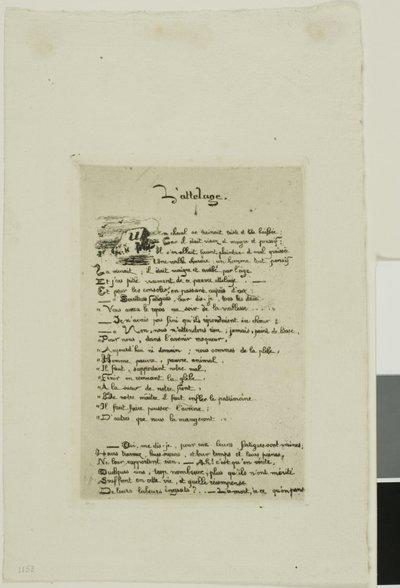 L'attelage.
Un cheval se trainait triste et tête baissée;
Car il était vieux, et maigre et
Il s'en allait
Une vieille charrue; un homme tout pensif
La suivait; il était maigre et par l'age
Et j'eus pitié vraiment de ce pauvre attelage. —
Et pour les consoler, en passant auprès d'eux
— " fatigués, leur dis-je, tous les deux
" Vous aurez le repos ce soir de la vallée ....
— Je n'avais pas fini qu'ils répondaient en chœur:
— " Non, nous n'attendons rien; jamais, point de
" Pour nous, dans l'avenir moqueur,
" Aujourd'hui ni demain; nous sommes de la plèbe,
" Homme pauvre, pauvre animal,
" Il faut, supportant notre mal,
" Finir en remuant la glèbe.
" A la sueur de notre front,
" De notre maître il faut enfler le patrimoine
" Il faut faire pousser l'avoine;
" D'autres que nous la mangeront ...
— Oui, me dis-je, pour eux leurs fatigues sont vaines;
et leur temps et leurs peines,
Ni leur rapportent rien. — Ah! c'est qu'en vérité,
Quelques uns, trop nombreux, plus qu'ils n'ont mérité
Souffrent en cette vie, et quelle récompense
De leurs labeurs ingrats? .. — La mort, à ce qu'on pense
1152